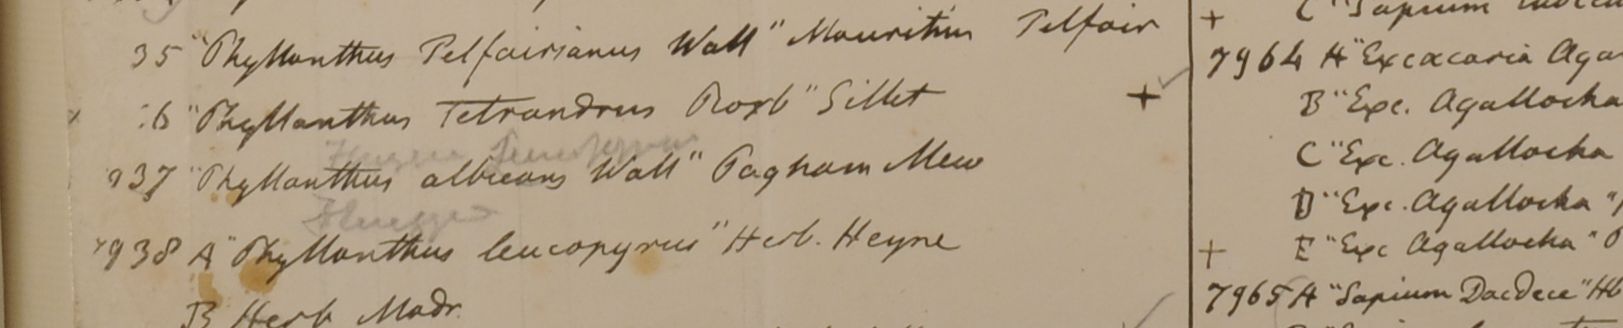 35 "Phyllanthus Telfairianus Wall" Mauritius Telfair
:6 "Phyllanthus Tetrandrus Roxb" Sillet +
937 "Phyllanthus albicans Wall" Pagham Mew
Flueggea
7938 A "Phyllanthus leucopyrus" Herb. Heyne
B Herb. Madr.
+ C "Sapium
7964 A "Excacaria Aga
B "Exc. Agallocha
C "Exc. Agallocha
D "Exc. Agallocha "
+ E "Exc Agallocha"
7965 A "Sapium Dacdece" Hb